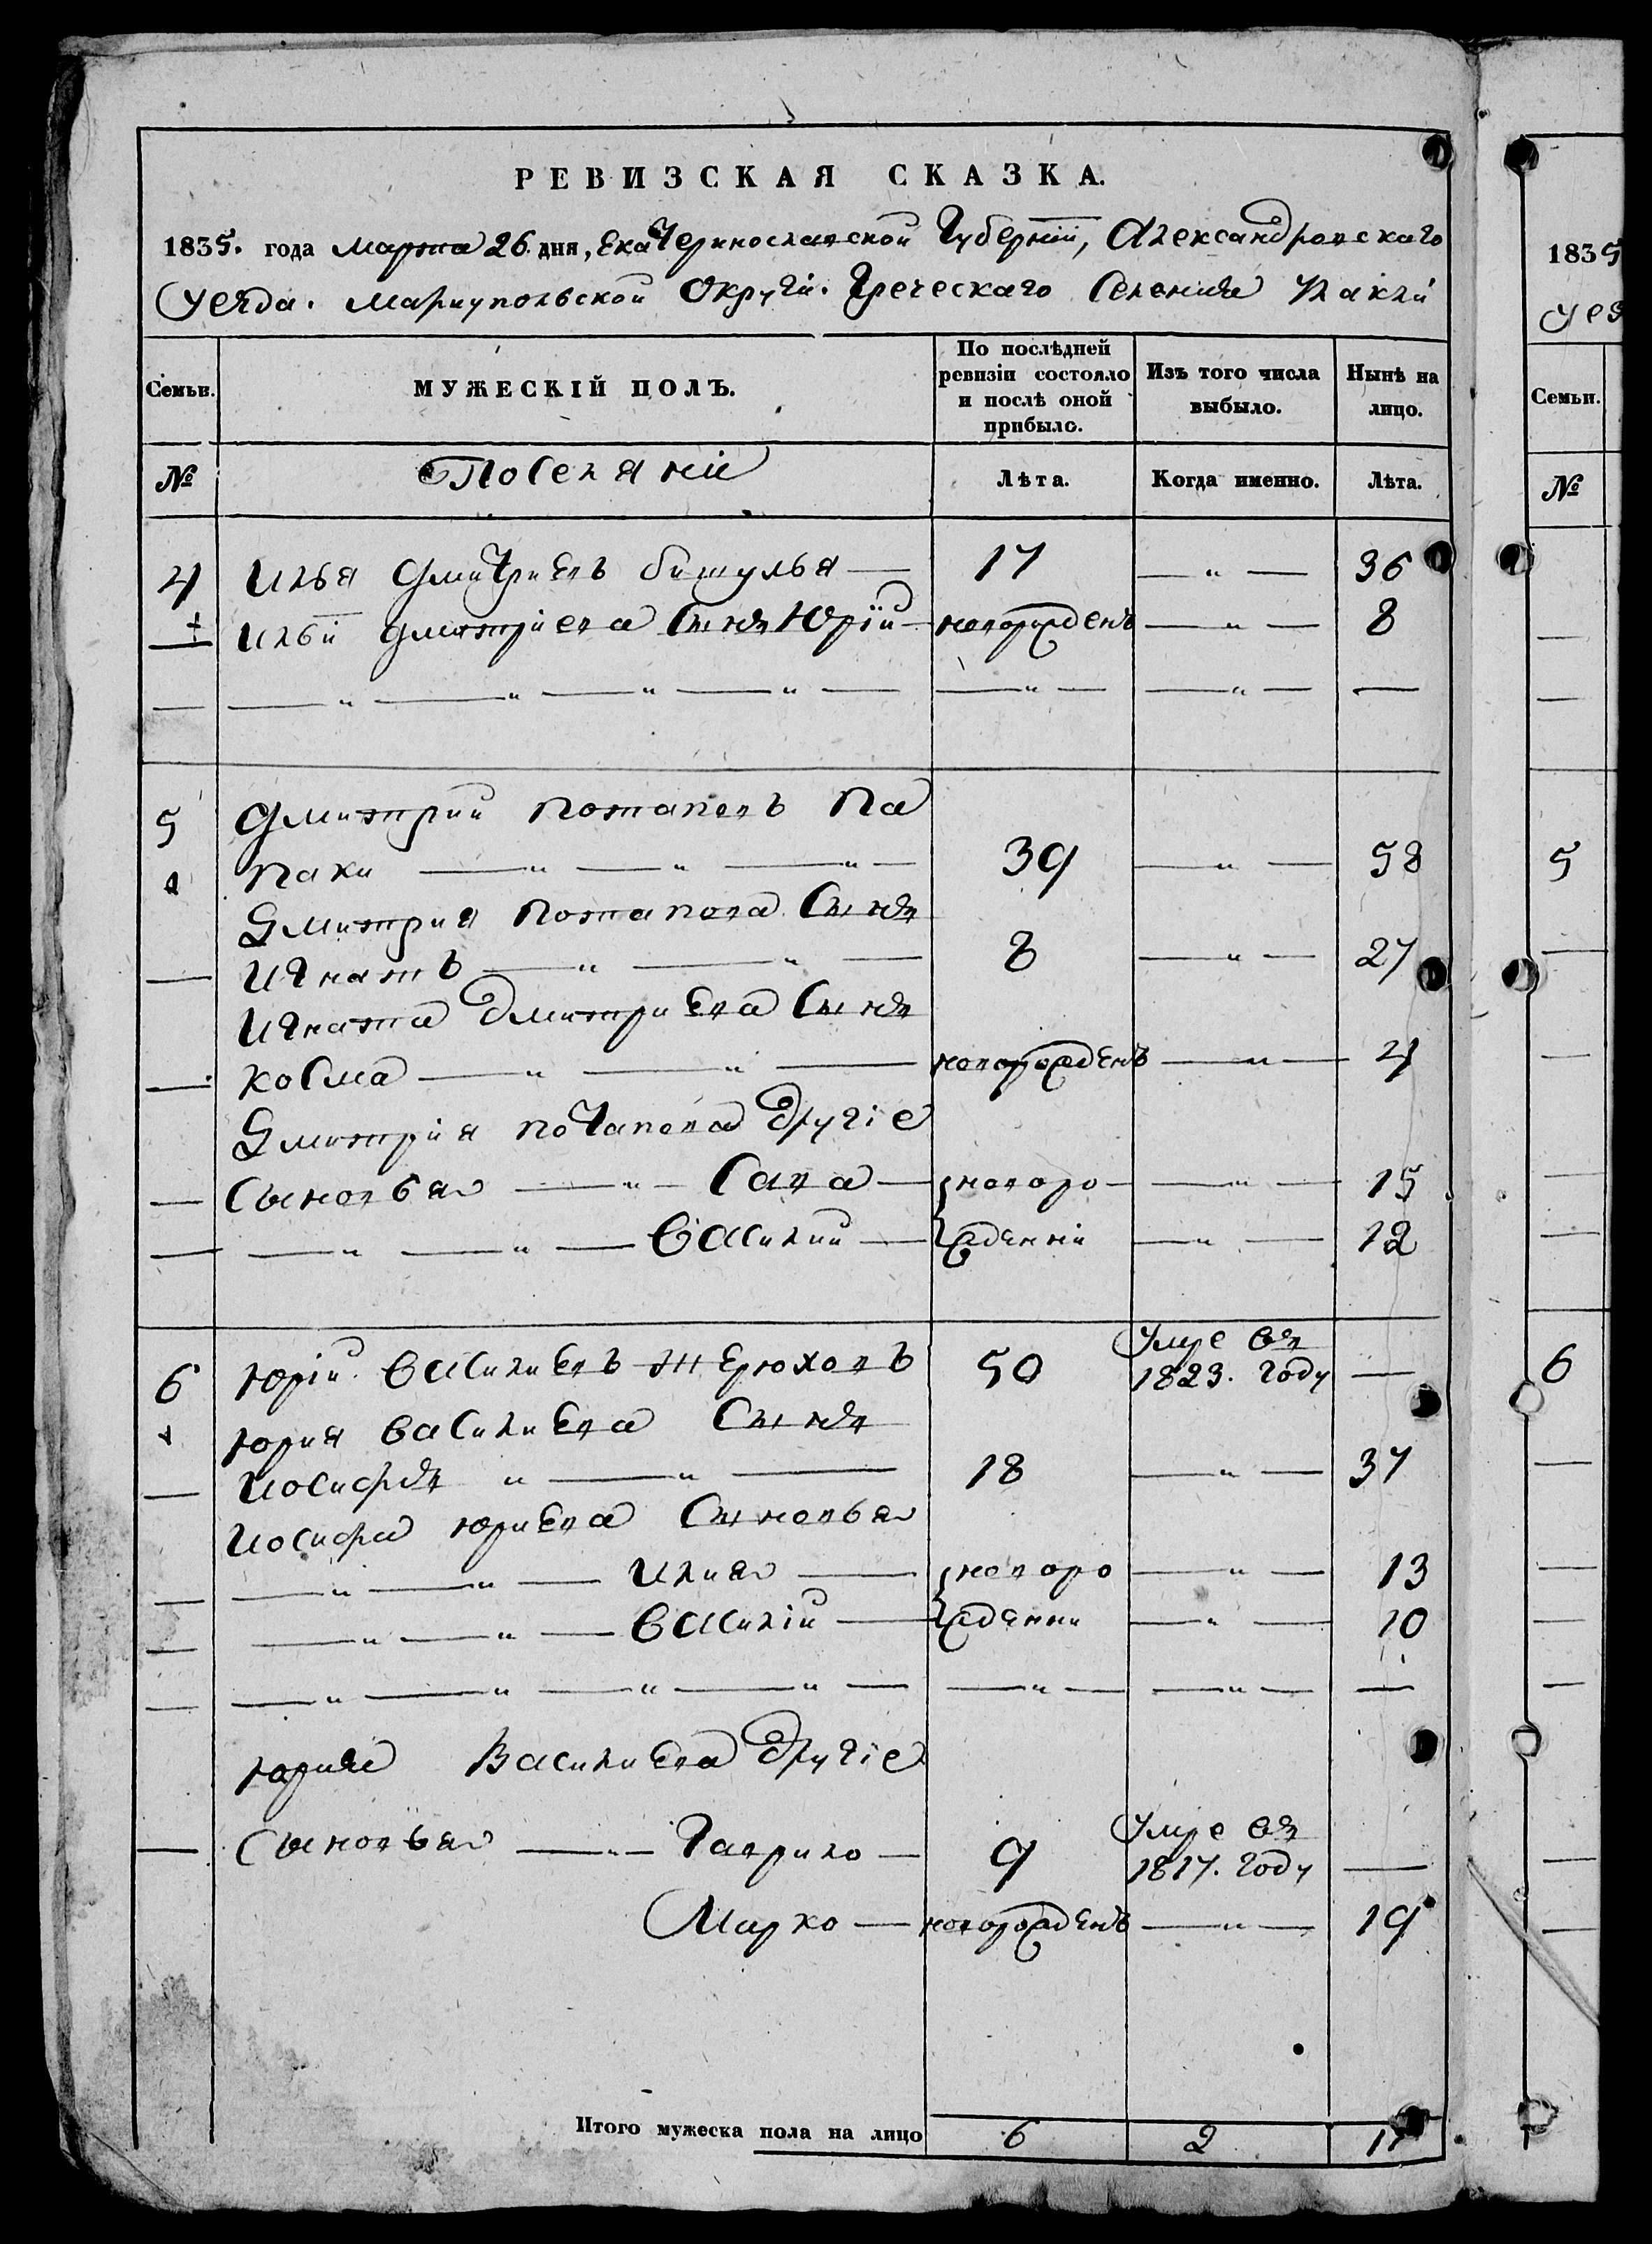 РЕВИЗСКАЯ СКАЗКА.
1835. года марта 26. дня, Екатеринославской Губерніи, Александровскаго
уезда. мариупольской Округи. Греческаго Селения
Семьи. МУЖЕСКІЙ ПОЛЪ. По послѣдней ревизіи состояло и послѣ оной прибыло. Изъ того числа выбыло. Нынѣ на лицо.
№ Поселяніи Лѣта. Когда именно. Лѣта.
4 Илья Дмитриевъ бишулья 17 — " — 36
Ильи дмитриева Сынъ Юрій новорожденъ — " — 8
5 Дмитрий потаповъ Па
паки 39 — " — 58
Дмитрия потапова Сынъ
Игнатъ 8 — " — 27
Игната Дмитриева Сынъ
косма новорожденъ — " — 4
Дмитрія потапова другіе
Сыновья — " — Сава — новоро — " — 15
василий — жденніи — " — 12
6 юрій василиевъ терюховъ 50 Умре въ 1823. году —
юрия василиева Сынъ
иосифъ 18 — " — 37
иосифа юриева Сыновья
илия — новоро — " — 13
василій — жденни — " — 10
юрия Василиева другіе
Сыновья — " — Гаврило — 9 Умре въ 1817. году —
Марко — новорожденъ — " — 19
Итого мужеска пола на лицо 6 2
1835
уез
Семьи.
№
5
6